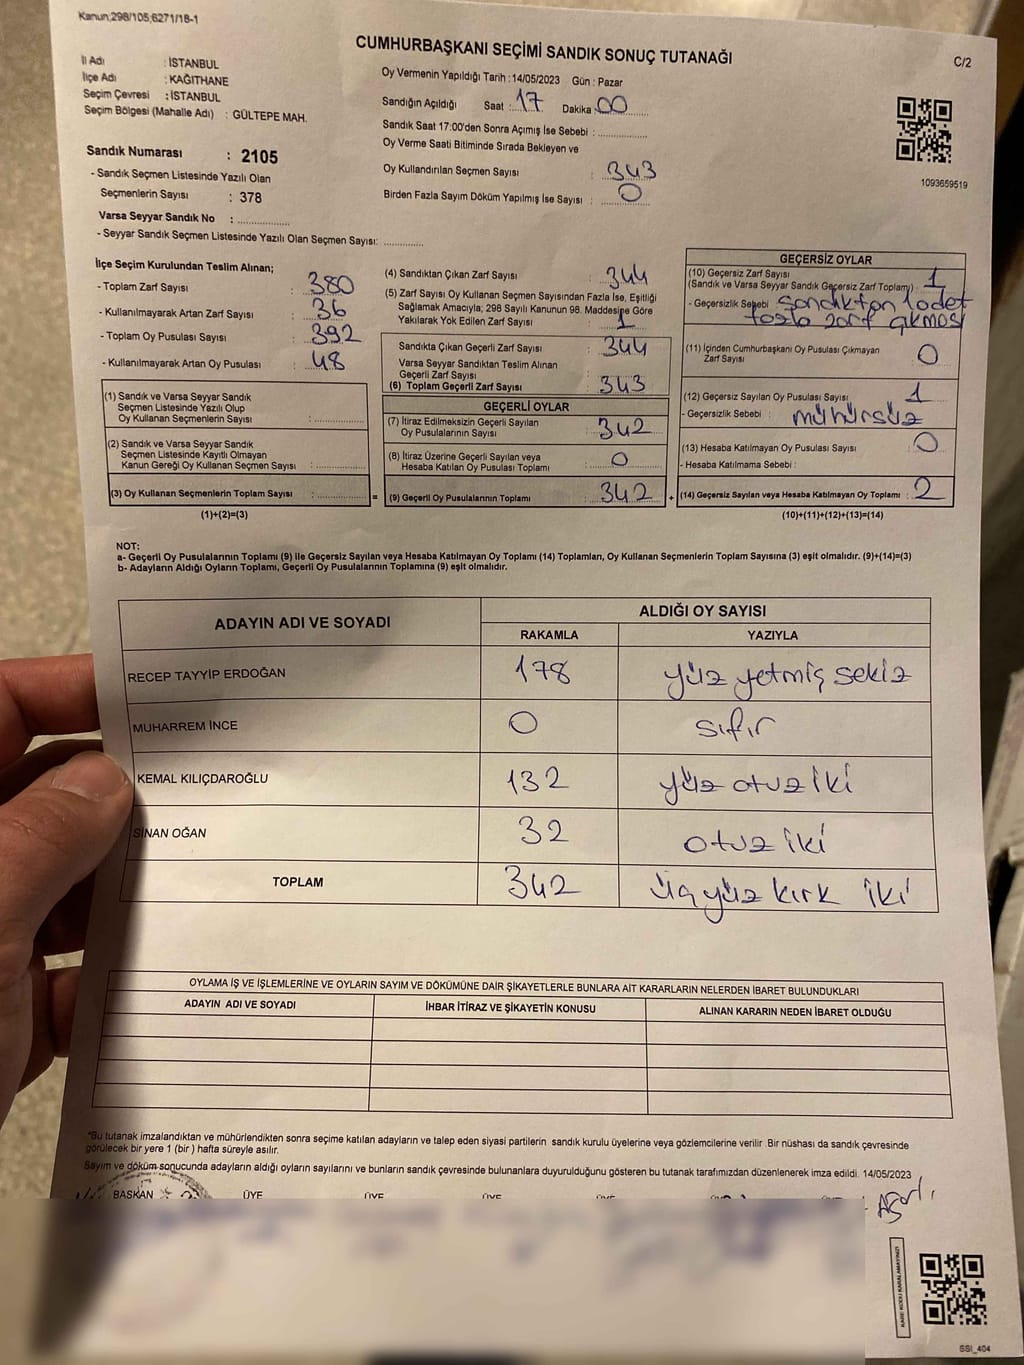 Kanun;298/105;6271/18-1
CUMHURBAŞKANI SEÇİMİ SANDIK SONUÇ TUTANAĞI
C/2
İl Adı : İSTANBUL
İlçe Adı : KAĞITHANE
Seçim Çevresi : İSTANBUL
Seçim Bölgesi (Mahalle Adı) : GÜLTEPE MAH.
Sandık Numarası : 2105
- Sandık Seçmen Listesinde Yazılı Olan
Seçmenlerin Sayısı : 378
Varsa Seyyar Sandık No : ..............
- Seyyar Sandık Seçmen Listesinde Yazılı Olan Seçmen Sayısı: ............
Oy Vermenin Yapıldığı Tarih : 14/05/2023 Gün : Pazar
Sandığın Açıldığı Saat : 17 Dakika : 00
Sandık Saat 17:00'den Sonra Açımış İse Sebebi : ..............
Oy Verme Saati Bitiminde Sırada Bekleyen ve
Oy Kullandırılan Seçmen Sayısı : 343
Birden Fazla Sayım Döküm Yapılmış İse Sayısı : 0
1093659519
İlçe Seçim Kurulundan Teslim Alınan;
- Toplam Zarf Sayısı : 380
- Kullanılmayarak Artan Zarf Sayısı : 36
- Toplam Oy Pusulası Sayısı : 392
- Kullanılmayarak Artan Oy Pusulası : 48
(1) Sandık ve Varsa Seyyar Sandık
Seçmen Listesinde Yazılı Olup
Oy Kullanan Seçmenlerin Sayısı : ..............
(2) Sandık ve Varsa Seyyar Sandık
Seçmen Listesinde Kayıtlı Olmayan
Kanun Gereği Oy Kullanan Seçmen Sayısı : ..............
(3) Oy Kullanan Seçmenlerin Toplam Sayısı : ..............
=
(1)+(2)=(3)
(4) Sandıktan Çıkan Zarf Sayısı : 344
(5) Zarf Sayısı Oy Kullanan Seçmen Sayısından Fazla İse, Eşitliği
Sağlamak Amacıyla, 298 Sayılı Kanunun 98. Maddesine Göre
Yakılarak Yok Edilen Zarf Sayısı : 1
Sandıkta Çıkan Geçerli Zarf Sayısı : 344
Varsa Seyyar Sandıktan Teslim Alınan
Geçerli Zarf Sayısı
(6) Toplam Geçerli Zarf Sayısı : 343
GEÇERLİ OYLAR
(7) İtiraz Edilmeksizin Geçerli Sayılan
Oy Pusulalarının Sayısı : 342
(8) İtiraz Üzerine Geçerli Sayılan veya
Hesaba Katılan Oy Pusulası Toplamı : 0
(9) Geçerli Oy Pusulalarının Toplamı : 342
+
GEÇERSİZ OYLAR
(10) Geçersiz Zarf Sayısı
(Sandık ve Varsa Seyyar Sandık Geçersiz Zarf Toplamı) : 1
- Geçersizlik Sebebi : sandıktan 1 adet
fazla zarf çıkması
(11) İçinden Cumhurbaşkanı Oy Pusulası Çıkmayan
Zarf Sayısı : 0
(12) Geçersiz Sayılan Oy Pusulası Sayısı : 1
- Geçersizlik Sebebi : mühürsüz
(13) Hesaba Katılmayan Oy Pusulası Sayısı : 0
- Hesaba Katılmama Sebebi :
(14) Geçersiz Sayılan veya Hesaba Katılmayan Oy Toplamı : 2
(10)+(11)+(12)+(13)=(14)
NOT:
a- Geçerli Oy Pusulalarının Toplamı (9) ile Geçersiz Sayılan veya Hesaba Katılmayan Oy Toplamı (14) Toplamları, Oy Kullanan Seçmenlerin Toplam Sayısına (3) eşit olmalıdır. (9)+(14)=(3)
b- Adayların Aldığı Oyların Toplamı, Geçerli Oy Pusulalarının Toplamına (9) eşit olmalıdır.
ADAYIN ADI VE SOYADI
ALDIĞI OY SAYISI
RAKAMLA YAZIYLA
RECEP TAYYİP ERDOĞAN 178 yüz yetmiş sekiz
MUHARREM İNCE 0 sıfır
KEMAL KILIÇDAROĞLU 132 yüz otuz iki
SİNAN OĞAN 32 otuz iki
TOPLAM 342 üçyüz kırk iki
OYLAMA İŞ VE İŞLEMLERİNE VE OYLARIN SAYIM VE DÖKÜMÜNE DAİR ŞİKAYETLERLE BUNLARA AİT KARARLARIN NELERDEN İBARET BULUNDUKLARI
ADAYIN ADI VE SOYADI İHBAR İTİRAZ VE ŞİKAYETİN KONUSU ALINAN KARARIN NEDEN İBARET OLDUĞU
*Bu tutanak imzalandıktan ve mühürlendikten sonra seçime katılan adayların ve talep eden siyasi partilerin sandık kurulu üyelerine veya gözlemcilerine verilir. Bir nüshası da sandık çevresinde
görülecek bir yere 1 (bir ) hafta süreyle asılır.
Sayım ve döküm sonucunda adayların aldığı oyların sayılarını ve bunların sandık çevresinde bulunanlara duyurulduğunu gösteren bu tutanak tarafımızdan düzenlenerek imza edildi. 14/05/2023
BAŞKAN ÜYE ÜYE ÜYE
KARE KODU KARALAMAYINIZ!
SSI_404